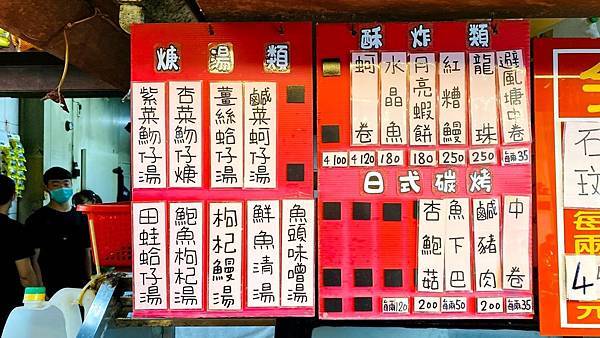 焿湯類
紫菜魩仔湯
杏菜魩仔焿
薑絲蛤仔湯
鹹菜蚵仔湯
田蛙蛤仔湯
鮑魚枸杞湯
枸杞鰻湯
鮮魚清湯
魚頭味噌湯
酥炸類
4 100
蚵卷
4 120
水晶魚
180
月亮蝦餅
180
紅糟鰻
250
龍珠
250
避風塘中卷
每兩35
日式碳烤
每兩120
杏鮑菇
200
魚下巴
每兩50
鹹豬肉
200
中卷
每兩35
石斑
每兩